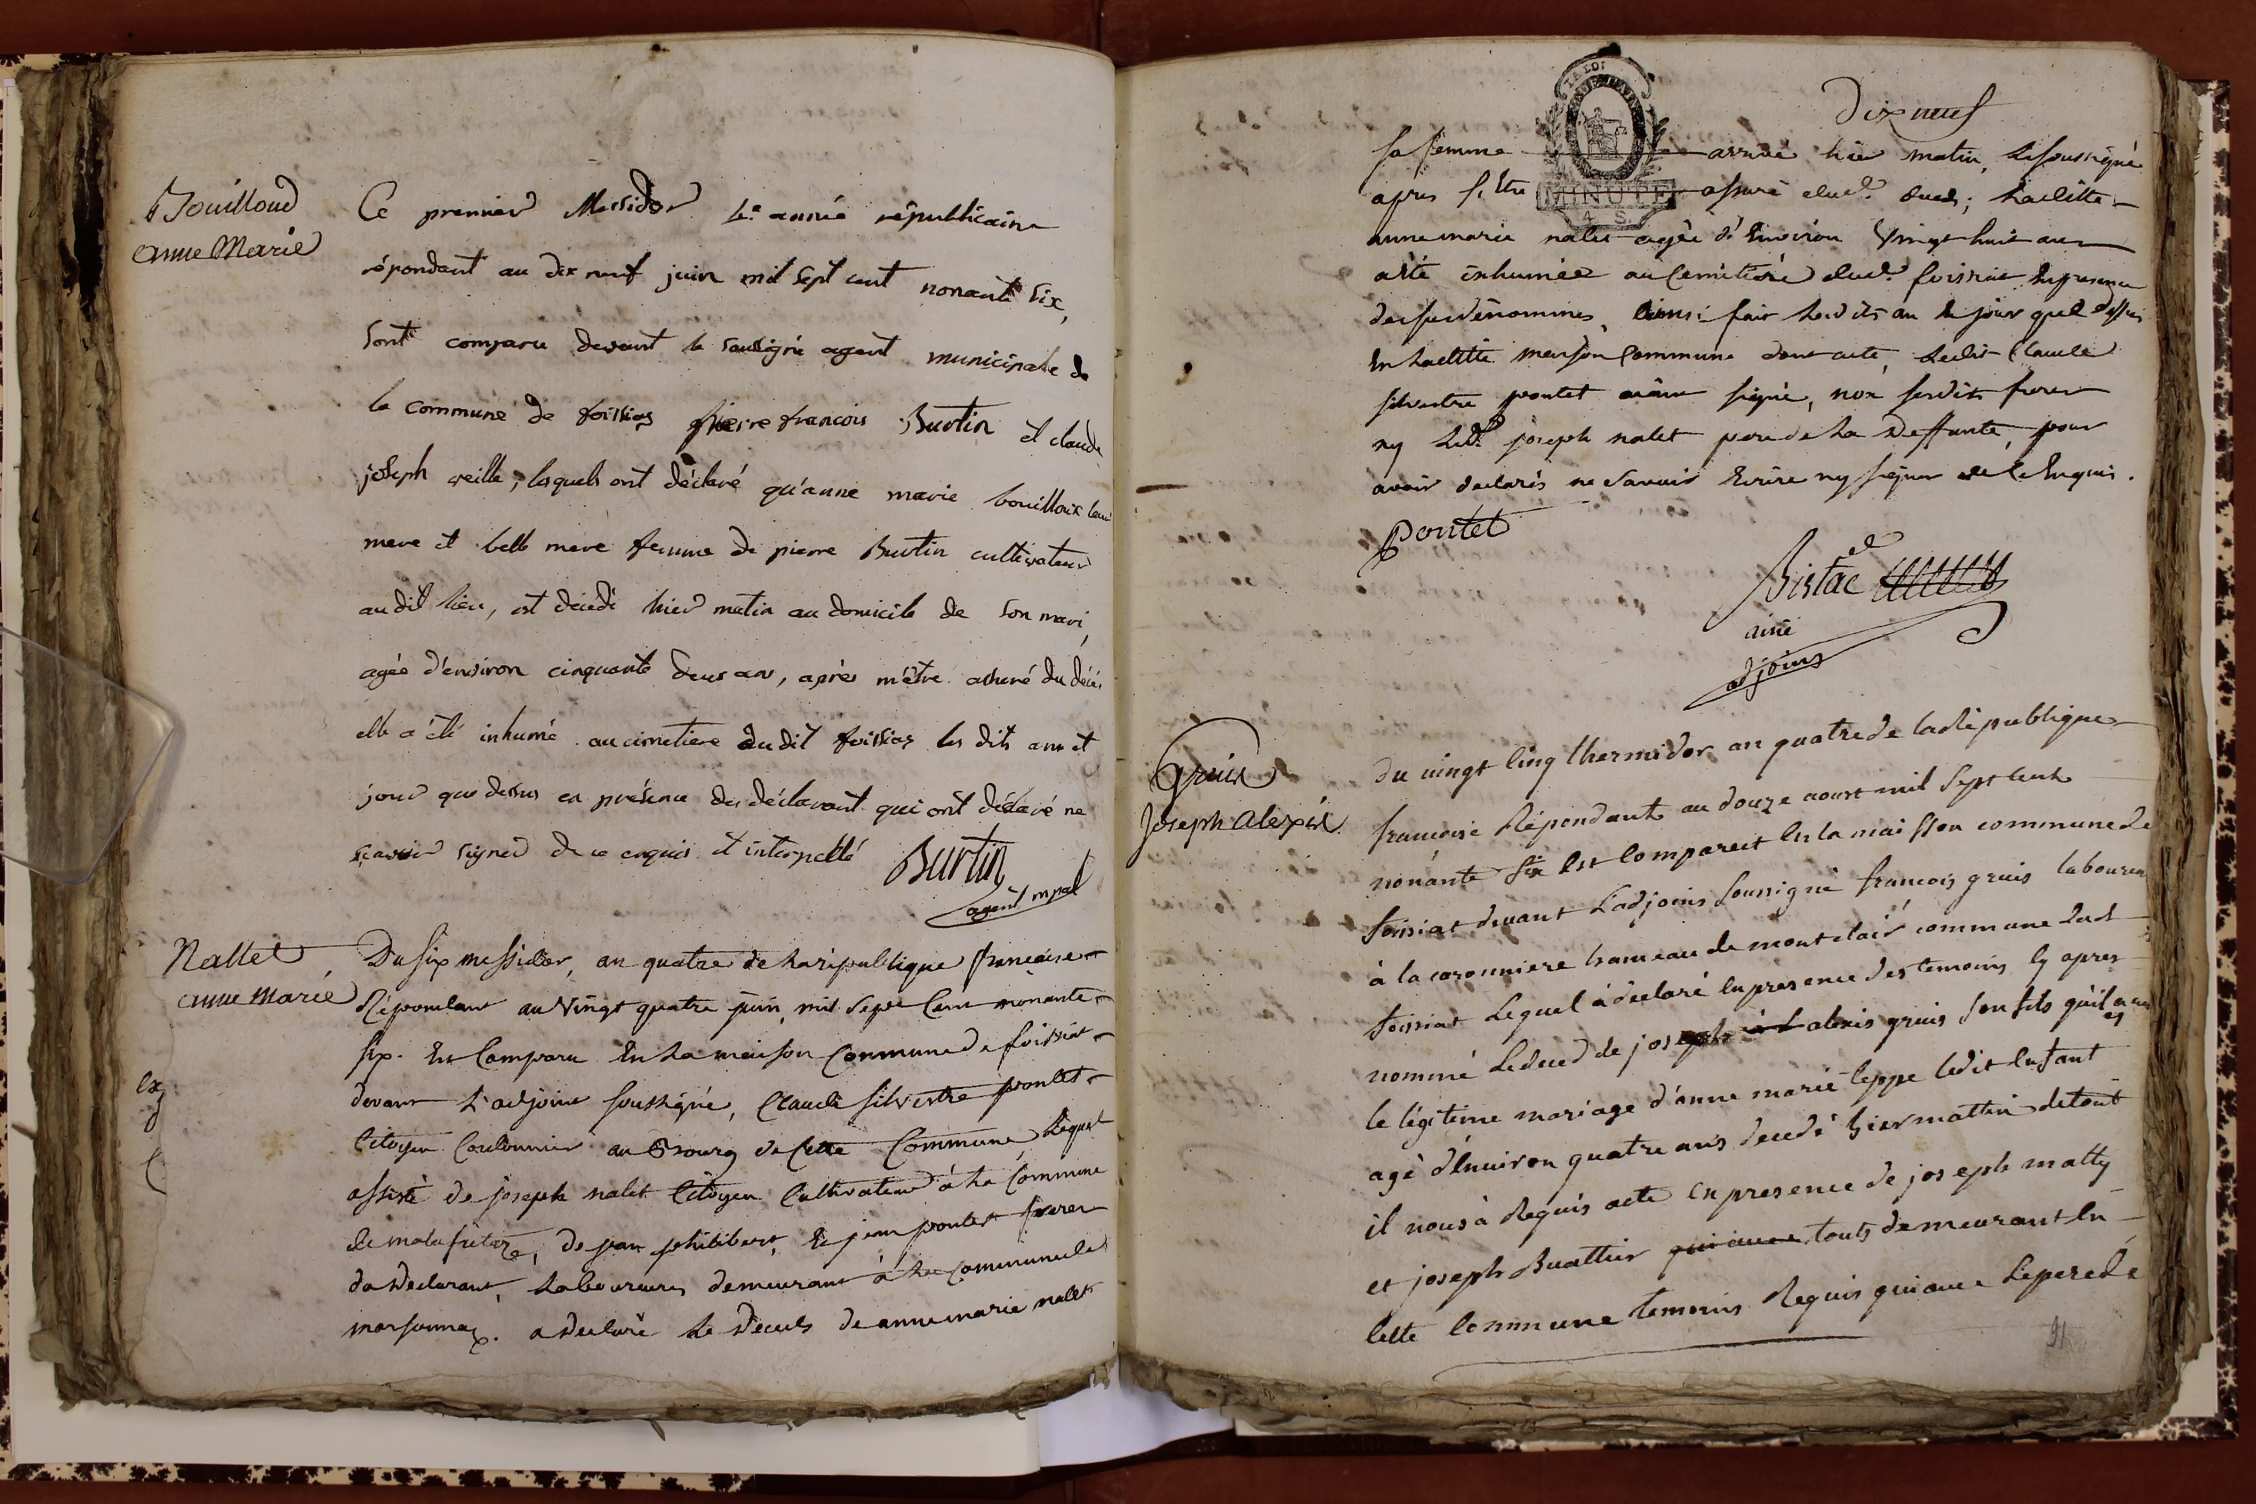 Bouilloud
anne Marie
Ce premier Messidor 4e année républicaine
répondant au dix neuf juin mil sept cent nonante six,
sont comparu devant le soussigné agent municipale de
la commune de foissiaz pierre francois Burtin et claude
joseph veille, lesquels ont déclaré qu'anne marie bouilloux leur
mere et belle mere femme de pierre Burtin cultivateur
audit lieu, est décédé hier matin au domicile de son mari,
agée d'environ cinquante deux ans, après m'être assuré du décès
elle a été inhumé au cimetiere dudit foissiaz les dits an et
jour que dessus en présence des déclarant qui ont déclaré ne
sçavoir signer de ce enquis et interpellé
Burtin
agent mpal
Nallet
anne Marie
Du six messidor, an quatre de la republique francaise
Répondant au vingt quatre juin, mil sept cent nonante
six. Est Comparu En la maison Commune de foissiat
devant L'adjoint soussigné, Claude silvestre pontet
Citoyen Cordonnier au Bourg de Cette Commune Lequel
assisté de joseph nalet Citoyen Cultivateur à la Commune
de malafretaz, de jean philibert, Et jean pontet freres
du declarant, Laboureurs demeurant à la commune de
marsonnaz. a declaré le déces de anne marie nalet
dix neuf
LA LOI
MINUTE
4 S.
sa femme arrivé hier matin, Le soussigné
apres s'être assuré dud. deces; Laditte
anne marie nalet agée d'Environ Vingt huit ans
a été inhumée au Cemetière dud. foissiat En presence
des susdénommés, Ainsi fait Lesdits an Et jour que dessus
En Laditte maison Commune dont acte, Ledit Claude
silvestre pontet a signé, non sesdits freres
ny Led. joseph nalet pere de La deffunte, pour
avoir declarés ne savoir Ecrire ny signer de Ce Enquis.
Pontet
Bistac
ainé
adjoins
Gruis
Joseph Alexis
du vingt Cinq thermidor an quatre de la République
francaise Répondant au douze aoust mil Sept Cent
nonante Six Est Comparut En la maisson commune de
foissiat devant L'adjoins soussigné francois gruis laboureur
à la caronniere hameau de montclair commune dud
foissiat Lequel à declaré en presence des temoins cy apres
nommé Le deced de joseph alexis gruis son fils qu'il a eu
le légitime mariage d'anne marie Cuppe Ledit Enfant
agé d'Environ quatre ans decedé hier mattin de tout
il nous à Requis acte En presence de joseph matty
et joseph Buattier touts demeurant En
Cette Commune temoins Requis qui avec Le pere de